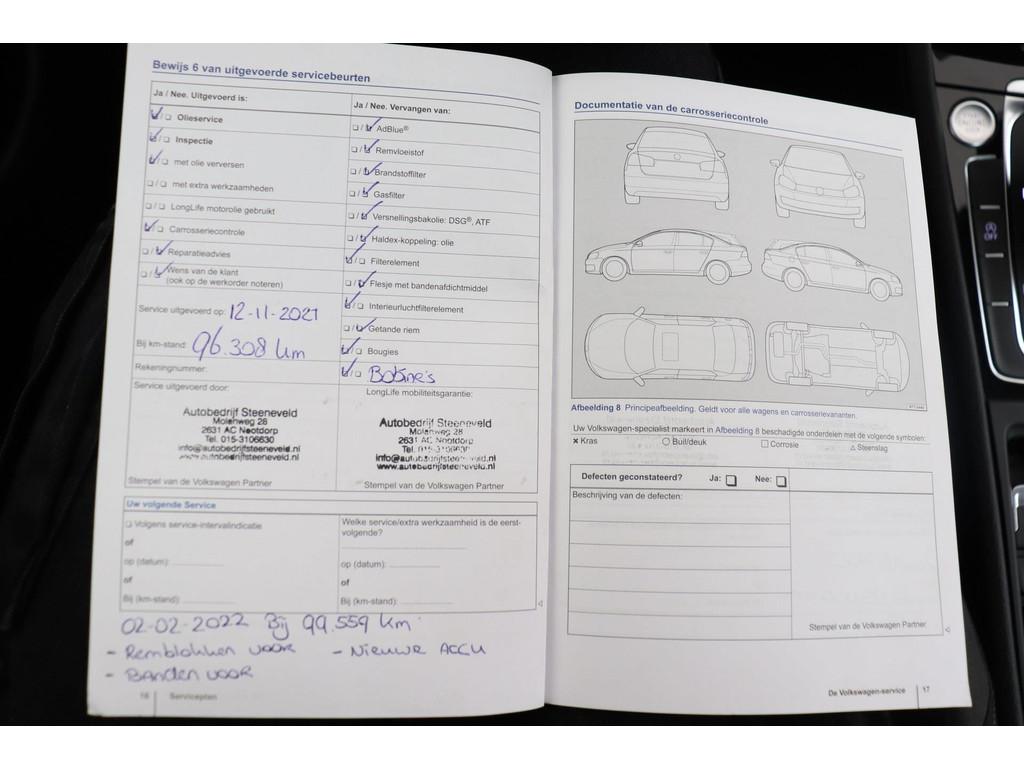 Bewijs 6 van uitgevoerde servicebeurten
Ja / Nee. Uitgevoerd is:
Olieservice
Inspectie
met olie verversen
met extra werkzaamheden
LongLife motorolie gebruikt
Carrosseriecontrole
Reparatieadvies
Wens van de klant
(ook op de werkorder noteren)
Service uitgevoerd op: 12-11-2021
Bij km-stand: 96.308 km
Rekeningnummer:
Service uitgevoerd door:
Autobedrijf Steeneveld
Molenweg 28
2631 AC Nootdorp
Tel. 015-3106630
info@autobedrijfsteeneveld.nl
www.autobedrijfsteeneveld.nl
Stempel van de Volkswagen Partner
Ja / Nee. Vervangen van:
AdBlue®
Remvloeistof
Brandstoffilter
Gasfilter
Versnellingsbakolie: DSG®, ATF
Haldex-koppeling: olie
Filterelement
Flesje met bandenafdichtmiddel
Interieurluchtfilterelement
Getande riem
Bougies
Bobine's
LongLife mobiliteitsgarantie:
Autobedrijf Steeneveld
Molenweg 28
2631 AC Nootdorp
Tel. 015-3106630
info@autobedrijfsteeneveld.nl
www.autobedrijfsteeneveld.nl
Stempel van de Volkswagen Partner
Uw volgende Service
Volgens service-intervalindicatie
of
op (datum):
of
Bij (km-stand):
Welke service/extra werkzaamheid is de eerst-
volgende?
op (datum):
of
Bij (km-stand):
02-02-2022 Bij 99.559 km
- Remblokken voor - Nieuwe ACCU
- Banden voor
16 Servicepten
Documentatie van de carrosseriecontrole
Afbeelding 8 Principeafbeelding. Geldt voor alle wagens en carrosserievarianten.
Uw Volkswagen-specialist markeert in Afbeelding 8 beschadigde onderdelen met de volgende symbolen:
× Kras ○ Buil/deuk □ Corrosie △ Steenslag
Defecten geconstateerd? Ja: Nee:
Beschrijving van de defecten:
Stempel van de Volkswagen Partner
De Volkswagen-service 17
OFF